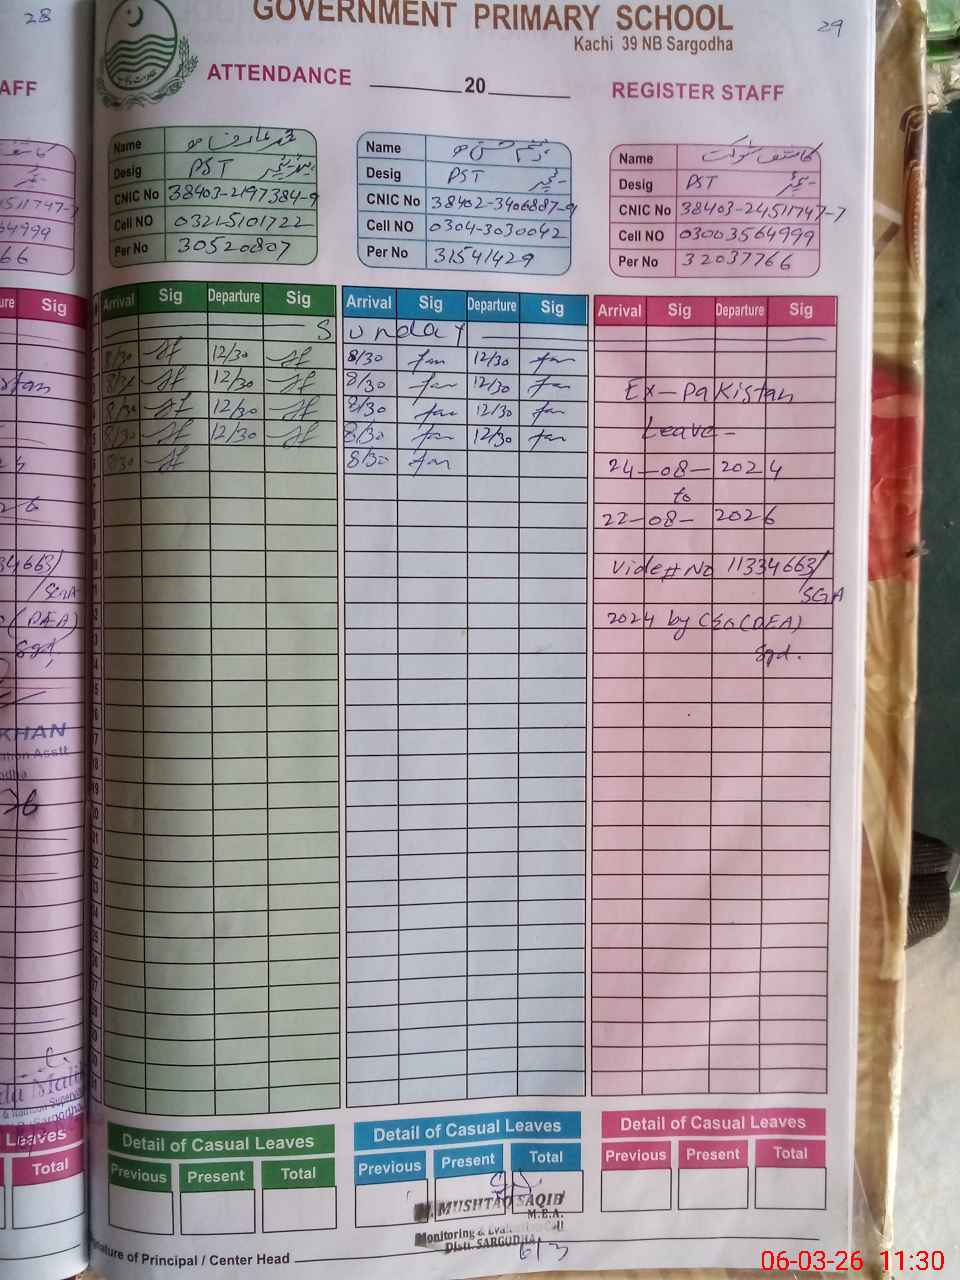 28
GOVERNMENT PRIMARY SCHOOL
29
Kachi 39 NB Sargodha
AFF
ATTENDANCE ________20________
REGISTER STAFF
Name
Desig PST
CNIC No 38403-2197384-9
Cell NO 0321-5101722
Per No 30520807
Name
Desig PST
CNIC No 38402-3406887-9
Cell NO 0304-3030042
Per No 31541429
Name کاشف شوکت
Desig PST
CNIC No 38403-2451747-7
Cell NO 03003564999
Per No 32037766
Arrival Sig Departure Sig Arrival Sig Departure Sig Arrival Sig Departure Sig
Sunday
8/30 12/30 8/30 12/30
8/30 12/30 8/30 12/30
8/30 12/30 8/30 12/30
8/30 12/30 8/30 12/30
8/30 8/30
Ex-Pakistan
Leave-
24-08-2024
to
22-08-2026
Vide # No 11334663/
SGA
2024 by CEO (DEA)
Sgd.
Sig
KHAN
Leaves
Total
Detail of Casual Leaves
Previous Present Total
Detail of Casual Leaves
Previous Present Total
Detail of Casual Leaves
Previous Present Total
M. MUSHTAQ SAQIB
M.E.A.
Monitoring & Evaluation Cell
Distt. SARGODHA
6/3
Signature of Principal / Center Head
06-03-26 11:30